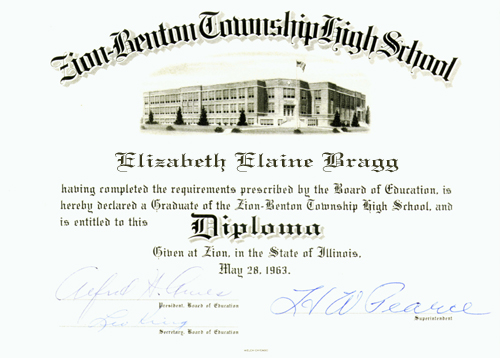 Zion-Benton Township High School
Elizabeth Elaine Bragg
having completed the requirements prescribed by the Board of Education, is
hereby declared a Graduate of the Zion-Benton Township High School, and
is entitled to this Diploma
Given at Zion, in the State of Illinois,
May 28, 1963.
Alfred H. Ames
President, Board of Education
H W Pearce
Superintendent
Secretary, Board of Education